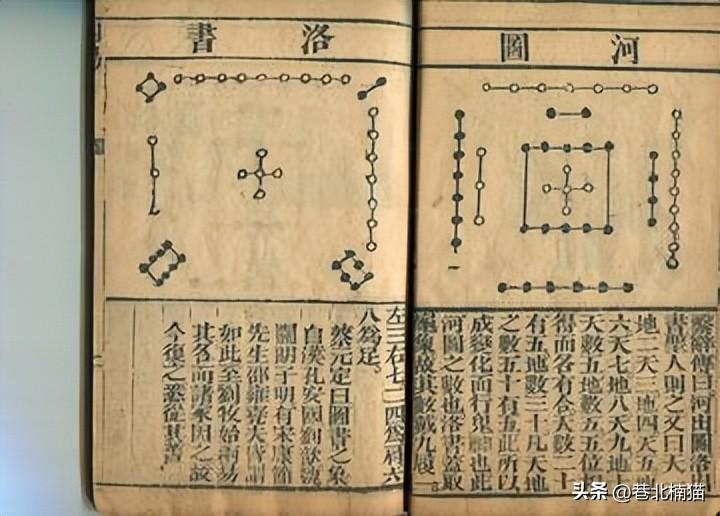 河圖
繫辭傳曰河出圖洛出
書聖人則之又曰天一
地二天三地四天五地
六天七地八天九地十
天數五地數五五位相
得而各有合天數二十
有五地數三十凡天地
之數五十有五此所以
成變化而行鬼神也此
河圖之數也洛書蓋取
龜象故其數戴九履一
洛書
左三右七二四爲肩六
八爲足。
蔡元定曰圖書之象
自漢孔安國劉歆魏
關朗子明有宋康節
先生邵雍堯夫皆謂
如此至劉牧始兩易
其名而諸家因之故
今復之悉從其舊
头条 @巷北楠猫